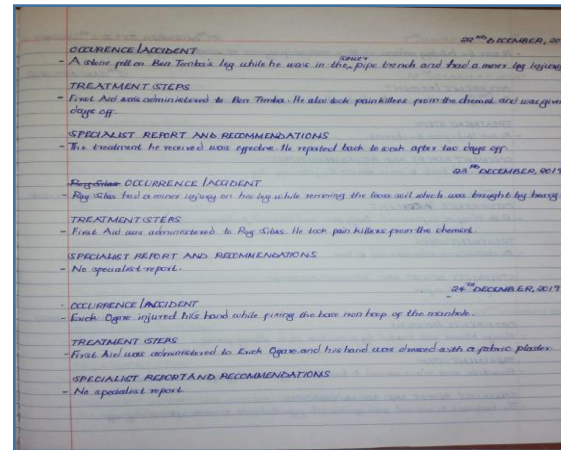 22ND DECEMBER, 201
OCCURENCE/ACCIDENT
- A stone fell on Ben Temba's leg while he was in the sewer pipe trench and had a minor leg injury
TREATMENT STEPS
- First Aid was administered to Ben Temba. He also took painkillers from the chemist and was given
days off.
SPECIALIST REPORT AND RECOMMENDATIONS
- The treatment he received was effective. He reported back to work after two days off.
23RD DECEMBER, 2019
OCCURRENCE/ACCIDENT
- Roy Silas had a minor injury on his leg while removing the loose soil which was brought by heavy
TREATMENT STEPS
- First Aid was administered to Roy Silas. He took pain killers from the chemist.
SPECIALIST REPORT AND RECOMMENDATIONS
- No specialist report.
24TH DECEMBER, 2019
OCCURRENCE/ACCIDENT
- Erick Ogare injured his hand while fixing the base iron hoop of the manhole.
TREATMENT STEPS
- First Aid was administered to Erick Ogare and his hand was dressed with a fabric plaster.
SPECIALIST REPORT AND RECOMMENDATIONS
- No specialist report